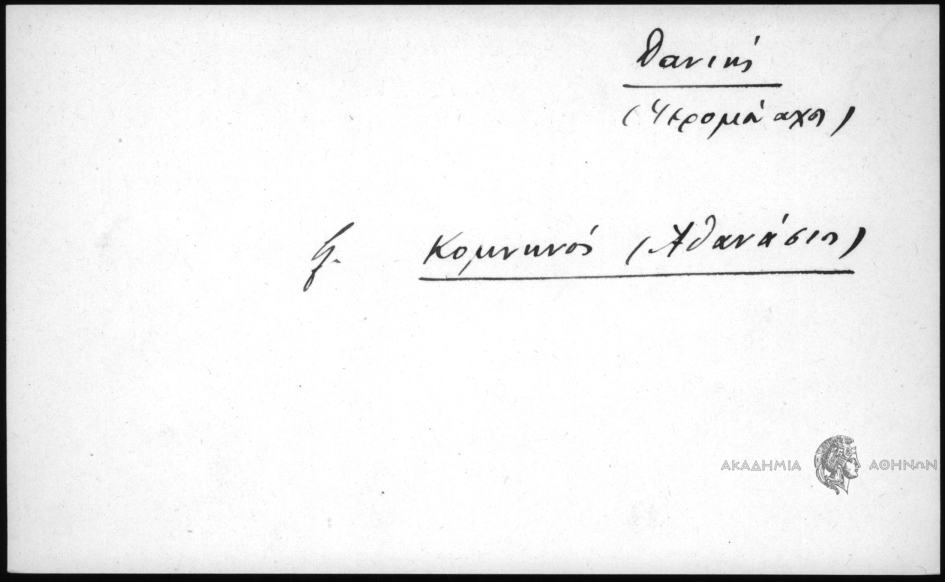 Δανιήλ
(Ιερομόναχος)
βλ. Κομνηνός (Αθανάσιος)
ΑΚΑΔΗΜΙΑ ΑΘΗΝΩΝ